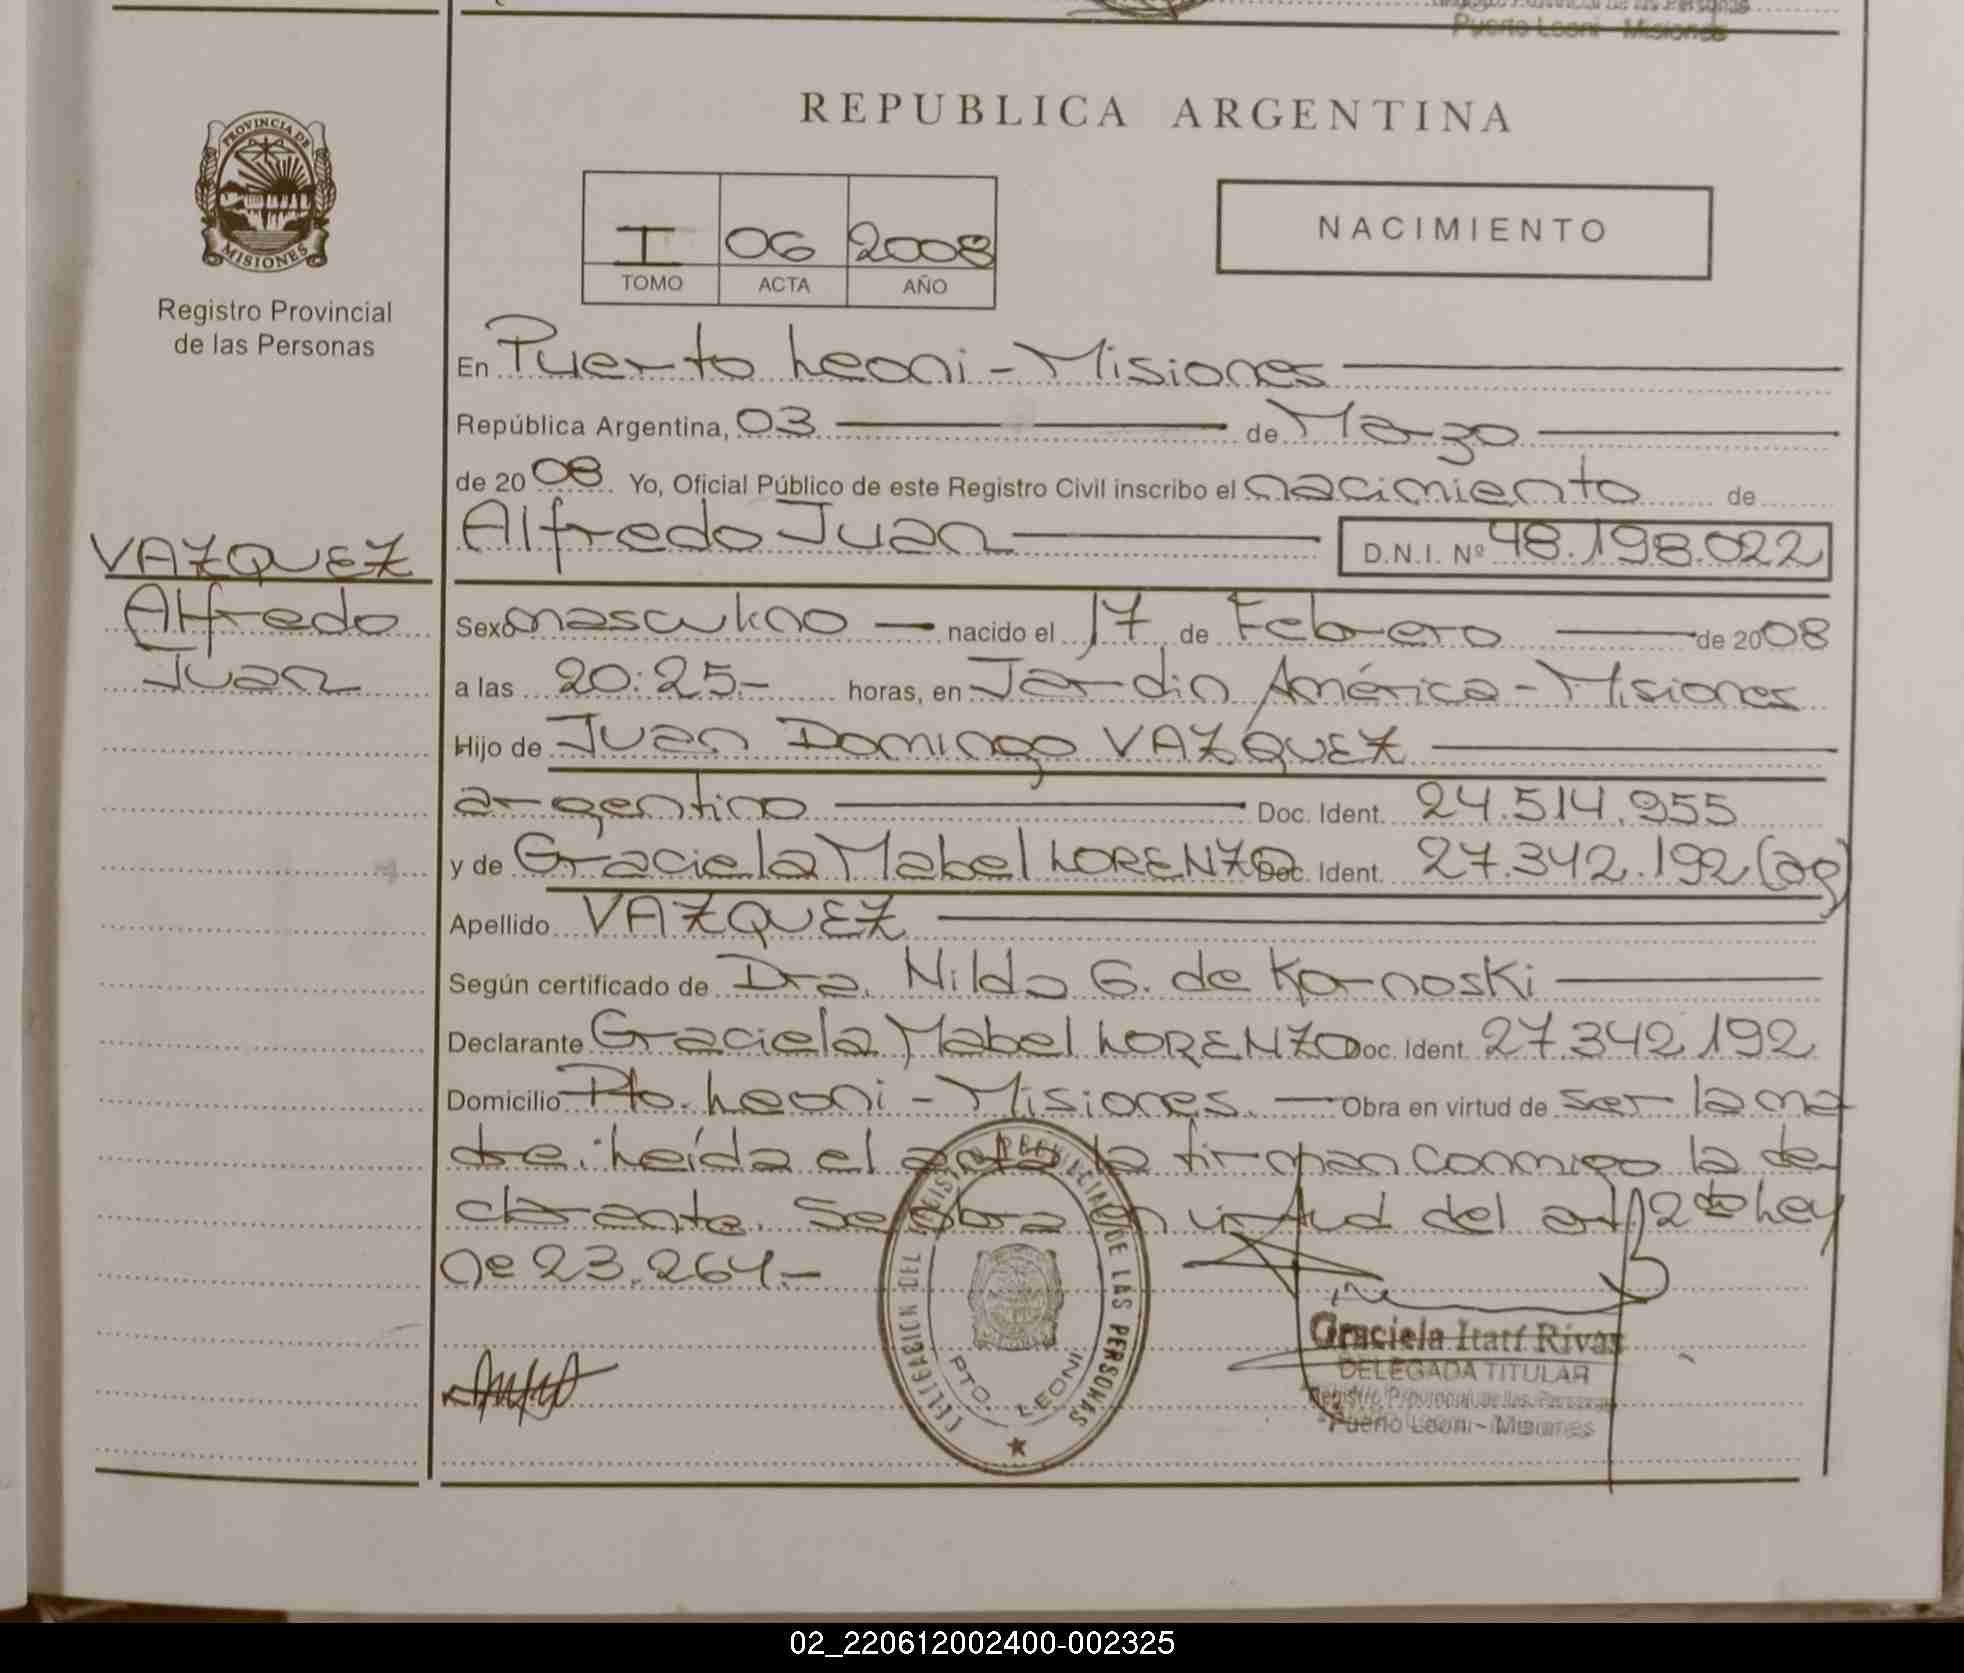 Registro Provincial de las Personas
Puerto Leoni - Misiones
REPUBLICA ARGENTINA
PROVINCIA DE
MISIONES
Registro Provincial
de las Personas
I 06 2008
TOMO ACTA AÑO
NACIMIENTO
En Puerto Leoni - Misiones
República Argentina, 03 de Marzo
de 2008 Yo, Oficial Público de este Registro Civil inscribo el nacimiento de
Alfredo Juan D.N.I. Nº 48.198.022
VAZQUEZ
Alfredo
Juan
Sexo masculino nacido el 17 de Febrero de 2008
a las 20:25.- horas, en Jardin América - Misiones
Hijo de Juan Domingo VAZQUEZ
argentino Doc. Ident. 24.514.955
y de Graciela Mabel LORENZO Doc. Ident. 27.342.192 (ag)
Apellido VAZQUEZ
Según certificado de Dra. Nilda G. de Kornoski
Declarante Graciela Mabel LORENZO Doc. Ident. 27.342.192
Domicilio Pto. Leoni - Misiones. Obra en virtud de ser la ma
dre: Leída el acta la firman conmigo la de
clarante. Se obra en virtud del art 12 de Ley
nº 23.264.-
DELEGACION DEL REGISTRO PROVINCIAL DE LAS PERSONAS
PTO. LEONI
Graciela Itatí Rivas
DELEGADA TITULAR
Registro Provincial de las Personas
Puerto Leoni - Misiones
02_220612002400-002325